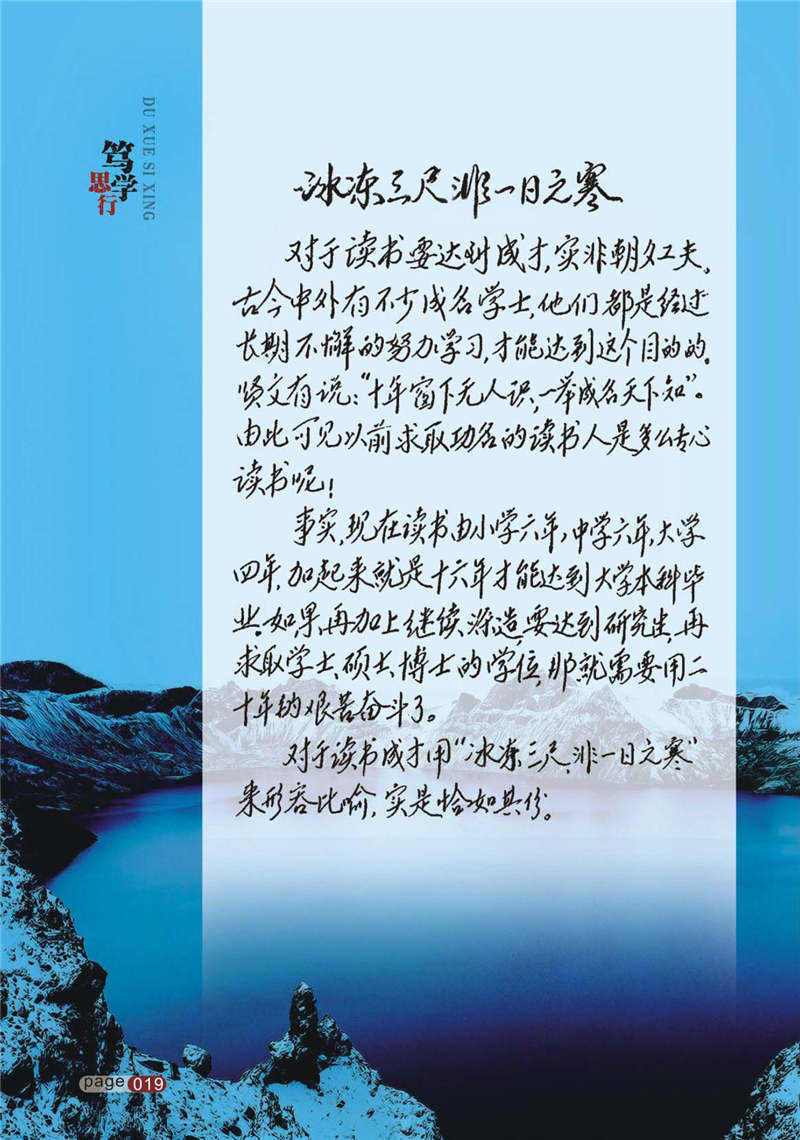 DU XUE SI XING
笃学
思行
冰冻三尺非一日之寒
对于读书要达到成才,实非朝夕工夫。
古今中外有不少成名学士,他们都是经过
长期不懈的努力学习,才能达到这个目的的。
贤文有说:“十年窗下无人识,一举成名天下知”。
由此可见以前求取功名的读书人是多么专心
读书呢!
事实,现在读书由小学六年,中学六年,大学
四年,加起来就是十六年才能达到大学本科毕
业。如果,再加上继续深造,要达到研究生,再
求取学士、硕士、博士的学位,那就需要用二
十年的艰苦奋斗了。
对于读书成才用“冰冻三尺,非一日之寒”
来形容比喻,实是恰如其份。
page 019